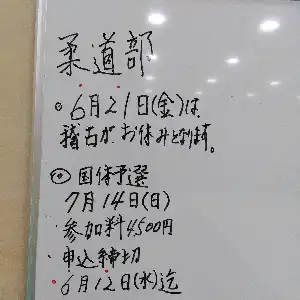 柔道部
◎6月21日(金)は
稽古がお休みとなります。
◎国体予選
7月14日(日)
参加料4,500円
申込締切
6月12日(水)迄